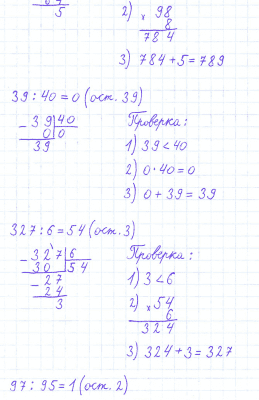 5
2) × 98
8
784
3) 784 + 5 = 789
39 : 40 = 0 (ост. 39)
- 39 | 40
0 | 0
39
Проверка:
1) 39 < 40
2) 0 · 40 = 0
3) 0 + 39 = 39
327 : 6 = 54 (ост. 3)
- 327 | 6
30 | 54
- 27
24
3
Проверка:
1) 3 < 6
2) × 54
6
324
3) 324 + 3 = 327
97 : 95 = 1 (ост. 2)